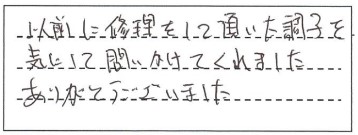 以前に修理をして頂いた調子を
気にして問いかけてくれました
ありがとうございました